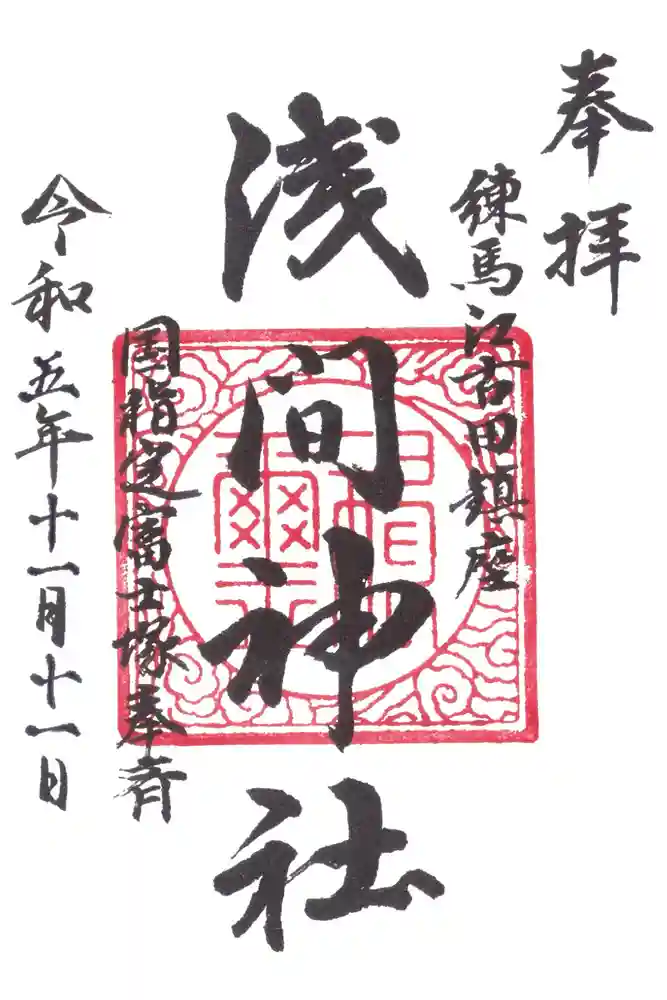 奉拝
練馬江古田鎮座
浅間神社
国指定富士塚奉斎
令和五年十一月十一日